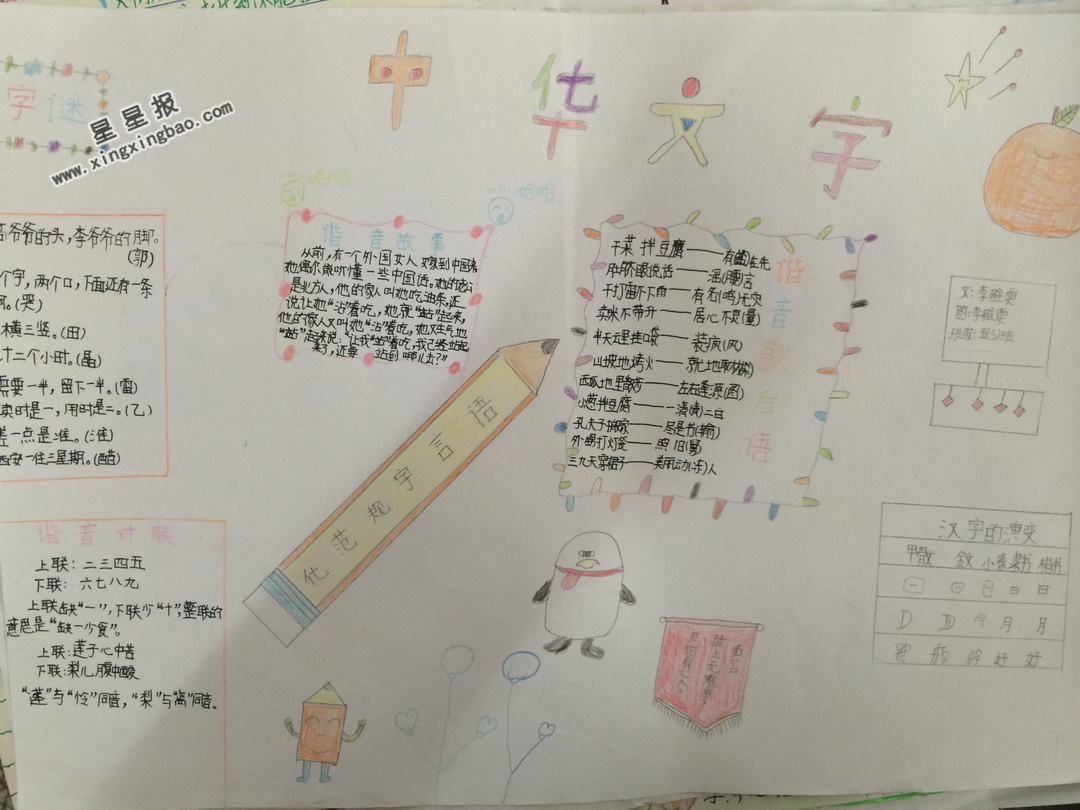 中华文字
字谜
星星报
www.xingxingbao.com
爷爷的头,李爷爷的脚。
(郭)
个字,两个口,下面还有一条
(哭)
横三竖。(田)
十二个小时。(晶)
需要一半,留下一半。(雷)
卖时是一,用时是二。(乙)
差一点是准。(淮)
西安一住三星期。(醋)
谐音对联
上联:二三四五
下联:六七八九
上联缺“一”,下联少“十”,整联的
意思是“缺一少食”。
上联:莲子心中苦
下联:梨儿腹中酸
“莲”与“怜”同音,“梨”与“离”同音。
哈哈
哈哈
谐音故事
从前,有一个外国女人嫁到中国来
她偶尔能听懂一些中国话。她的老公
是北方人,他的家人叫她吃油条,还
说让她“沾”着吃,她就“站”起来,
他的家人又叫她“沾”着吃,她又生气地
“站”起来说:“让我“站”着吃,我已经站起
来了,还要 站到哪儿去?”
规范化
字言语
谐音歇后语
干菜拌豆腐——有言在先
肚脐眼说话——谣(腰)言
干打雷不下雨——有名(鸣)无实
卖米不带升——居心不良(量)
半天云里挂口袋——装疯(风)
山坡地烤火——就地取材(柴)
西瓜地里散步——左右逢源(圆)
小葱拌豆腐——一清(青)二白
孔夫子搬家——尽是书(输)
外甥打灯笼——照旧(舅)
三九天穿裙子——美丽动(冻)人
文:李雅雯
图:李雅雯
班级:五(5)班
汉字的演变
甲骨文 金文 小篆 隶书 楷书
日 日
月 月
好 好
名言
世上无难事
只怕有心人